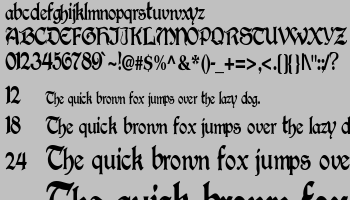 abcdefghijklmnopqrstuvwxyz
ABCDEFGHIJKLMNOPQRSTUVWXYZ
0123456789`~!@#$%^&*()-_+=>,<.[]{}|\":;/?
12 The quick brown fox jumps over the lazy dog.
18 The quick brown fox jumps over the lazy d
24 The quick brown fox jumps over
The quick brown fox